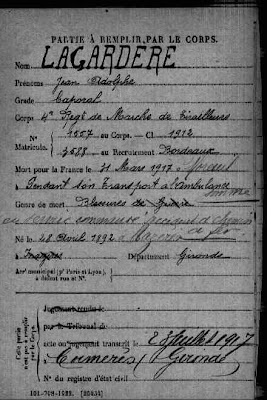 PARTIE À REMPLIR PAR LE CORPS.
Nom LAGARDÈRE
Prénoms Jean Adolphe
Grade Caporal
Corps 4e Regt de Marche de Tirailleurs
N° 1557 au Corps. — Cl. 1912
Matricule. 3588 au Recrutement Bordeaux
Mort pour la France le 31 Mars 1917
Pendant son transport à l'ambulance
Genre de mort Blessures de guerre
Né le 28 Avril 1892
à Département Gironde
Arr' municipal (p' Paris et Lyon),
à défaut rue et N°.
Cette partie n'est pas à remplir par le Corps.
Jugement rendu le
par le Tribunal de
acte ou jugement transcrit le 28 Juillet 1917
à (Gironde)
N° du registre d'état civil